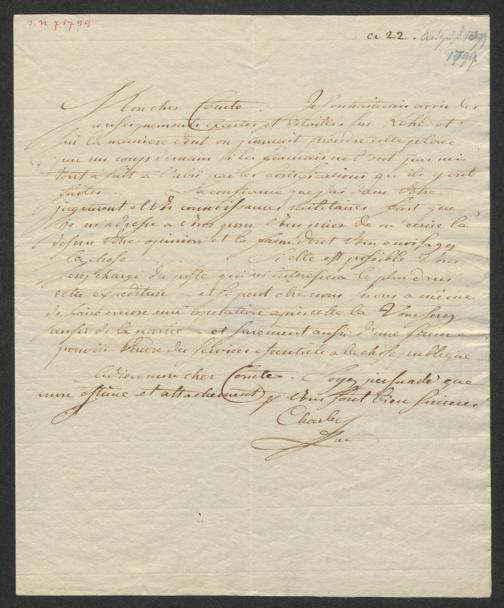 J. N 71799
ce 22. 
1799
Mon cher Comte. Je souhaiterais avoir des
renseignements exactes et detailles sur Kehl et
sur la maniere dont on pourrait prendre cette place
par un coup de main si les francais ne l'ont pas mis
tout a fait a l'abri par les fortifications qu'ils y ont
faites. La confiance que j'ai dans votre
jugement et vos connoissances militaires fait que
je m'adresse a vous pour vous prier de m'ecrire la
dessus votre opinion et la façon dont vous envisagez
la chose. Si elle est possible
en charge du poste qui m'interessera le plus dans
cette expedition et peut etre nous a meme
de faire encore une apres cela. Vous serez
aussi de la et surement aussi d'une façon a
pouvoir rendre des services essentiels a la chose publique
Adieu mon cher Comte. Soyez persuadé que
mon estime et attachement p. vous sont bien sinceres
Charles